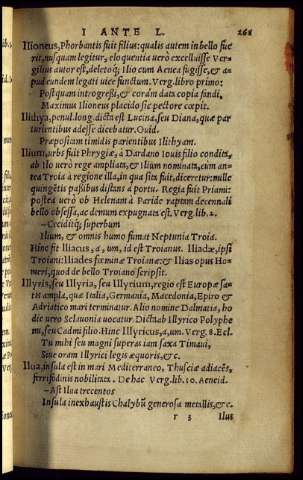 I ANTE L. 268
Ilioneus, Phorbantis fuit filius: qualis autem in bello fue
rit, nusquam legitur, eloquentia uero excelluisse Ver-
gilius autor est, deletoq; Ilio cum Aenea fugisse, & a-
pud eundem legati uice functum. Verg. libro primo:
Postquam introgressi, & coram data copia fandi,
Maximus Ilioneus placido sic pectore cœpit.
Ilithya, penul. long. dicta est Lucina, seu Diana, quæ par
turientibus adesse dicebatur. Ouid.
Præpositam timidis parientibus Ilithyam.
Ilium, urbs fuit Phrygiæ, à Dardano Iouis filio condita,
ab Ilo uero rege ampliata, & Ilium nominata, cum an-
tea Troia à regione illa, in qua sita fuit, diceretur: mille
quingẽtis passibus distans à portu. Regia fuit Priami:
postea uerò ob Helenam à Paride raptam decennali
bello obsessa, ac demum expugnata est. Verg. lib. 2.
—Ceciditq; superbum
Ilium, & omnis humo fumat Neptunia Troia.
Hinc fit Iliacus, a, um, id est Troianus. Iliadæ, ipsi
Troiani: Iliades fœminæ Troianæ: & Ilias opus Ho-
meri, quod de bello Troiano scripsit.
Illyris, seu Illyria, seu Illyrium, regio est Europæ sa-
tis ampla, quæ Italia, Germania, Macedonia, Epiro &
Adriatico mari terminatur. Alio nomine Dalmatia, ho
die uero Sclauonia uocatur. Dictam Illyrico Polyphe
mi, seu Cadmi filio. Hinc Illyricus, a, um. Verg. 8. Ecl.
Tu mihi seu magni superas iam saxa Timaui,
Siue oram Illyrici legis æquoris, &c.
Ilua, insula est in mari Mediterraneo, Thusciæ adiacẽs,
ferrifodinis nobilitata. De hac Verg. lib. 10. Aeneid.
—Ast Ilua trecentos
Insula inexhaustis Chalybũ generosa metallis, &c.
r 3 Ilus